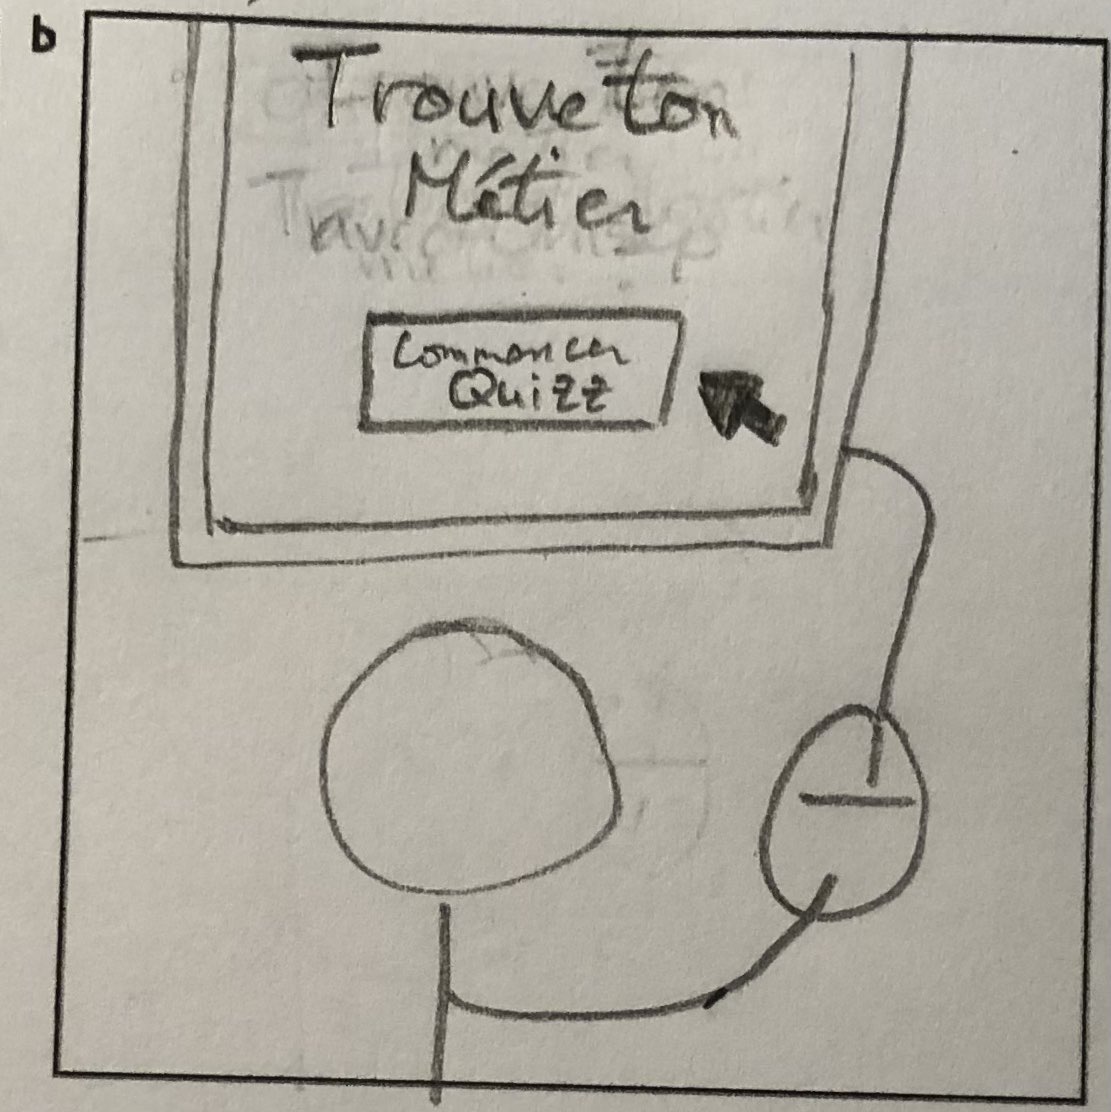 b
Trouve ton
Métier
Commencer
Quizz